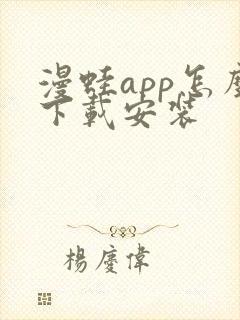 漫蛙app怎麼
下載安裝
楊慶偉